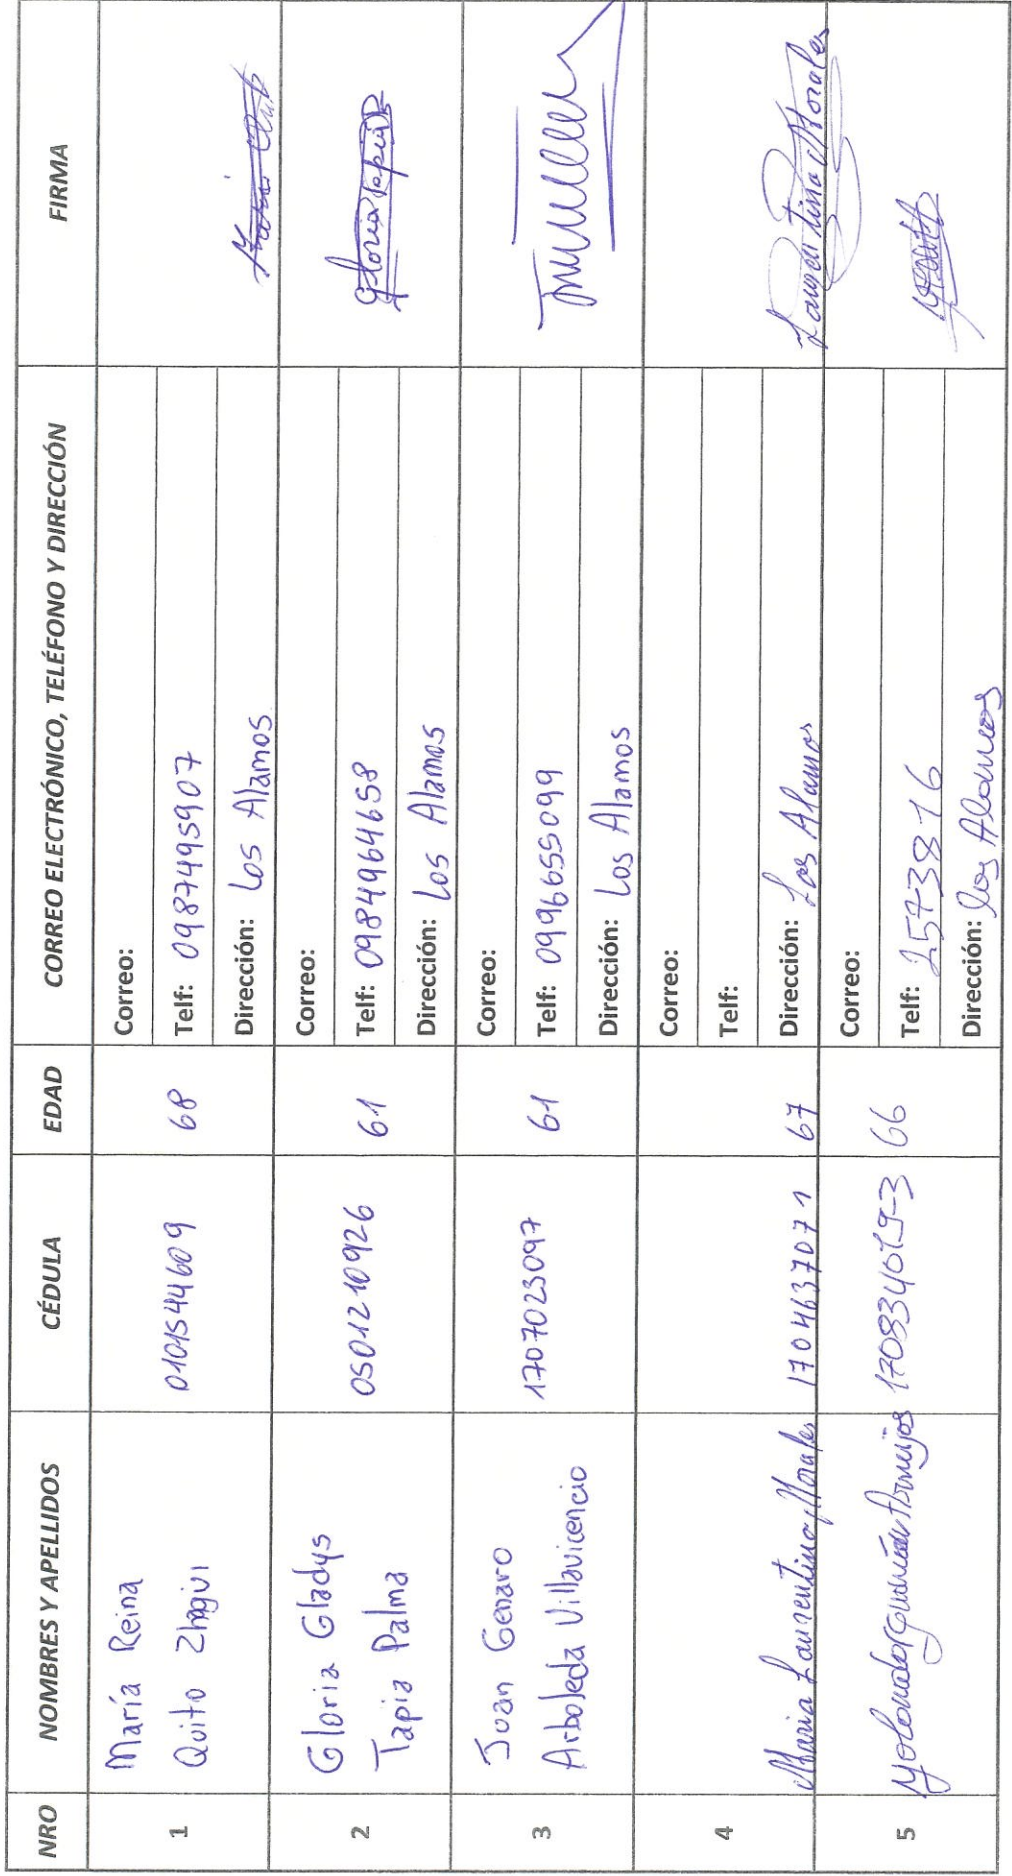 NRO NOMBRES Y APELLIDOS CÉDULA EDAD CORREO ELECTRÓNICO, TELÉFONO Y DIRECCIÓN FIRMA
1
María Reina
Quito Zhagui
0101544609
68
Correo:
Telf: 0987495907
Dirección: Los Alamos
2
Gloria Gladys
Tapia Palma
0501210926
61
Correo:
Telf: 0984964658
Dirección: Los Alamos
Gloria Tapia P
3
Juan Genaro
Arboleda Villavicencio
1707023097
61
Correo:
Telf: 0996655099
Dirección: Los Alamos
4
Maria Laurentina Morales
1704637071
67
Correo:
Telf:
Dirección: Los Alamos
Laurentina Morales
5
Yolanda Armijos
170834019-3
66
Correo:
Telf: 2573816
Dirección: los Alamos